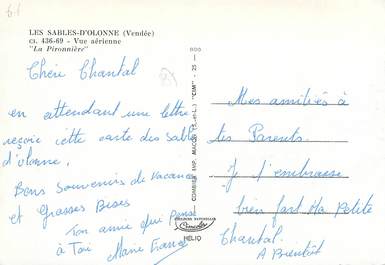 LES SABLES-D'OLONNE (Vendée)
CI. 436-69 - Vue aérienne
"La Pironnière"
Chéri Chantal
en attendant une lettre
reçoie cette carte des Sable
d'olonne.
Bons Souvenirs de Vacance
et Grosses Bises
Ton amie qui pense
à Toi Marie France
COMBIER IMP. MACON (S.-et-L.) "CIM" - 25 -
COULEURS NATURELLES
HELIO
Mes amitiés à
tes Parents.
Je t'embrasse
bien fort Ma Petite
Chantal.
A Bientôt